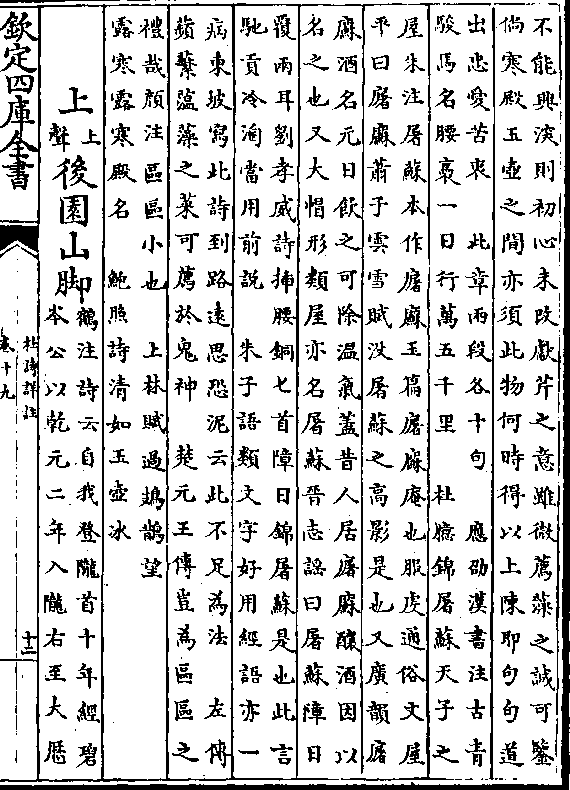 不能興淡則初心未改獻芹之意雖微薦藻之誠可鑒
倘寒殿玉壺之間亦須此物何時得以上陳耶句句道
出忠愛苦衷　此章兩段各十句　應劭漢書注古青
駿馬名腰褭一日行萬五千里　杜臆錦屠蘇天子之
屋朱注屠蘇本作廜㢝玉篇廜㢝庵也服虔通俗文屋
平曰廜㢝蕭子雲雪賦沒屠蘇之高影是也又廣韻廜
㢝酒名元日飲之可除溫氣蓋昔人居廜㢝釀酒因以
名之也又大帽形類屋亦名屠蘇晉志謡曰屠蘇障日
覆兩耳劉孝威詩挿腰銅匕首障日錦屠蘇是也此言
馳貢冷淘當用前說　朱子語類文字好用經語亦一
病東坡寫此詩到路遠思恐泥云此不足為法　左傳
蘋蘩薀藻之菜可薦於鬼神　楚元王傳豈為區區之
禮哉顔注區區小也　上林賦過鳷鵲望
露寒露寒殿名　鮑照詩清如玉壺冰
上上聲後園山脚鶴注詩云自我登隴首十年經碧
本公以乾元二年入隴右至大厯
欽定四庫全書
杜詩詳註
卷十九
十二